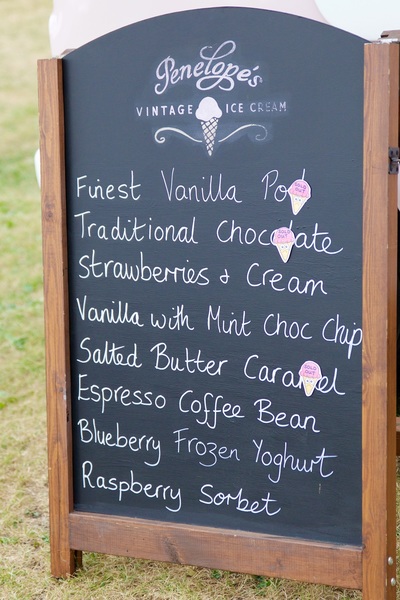 Penelope's
VINTAGE ICE CREAM
Finest Vanilla Pod
SOLD OUT
Traditional Chocolate
SOLD OUT
Strawberries & Cream
Vanilla with Mint Choc Chip
Salted Butter Caramel
SOLD OUT
Espresso Coffee Bean
Blueberry Frozen Yoghurt
Raspberry Sorbet